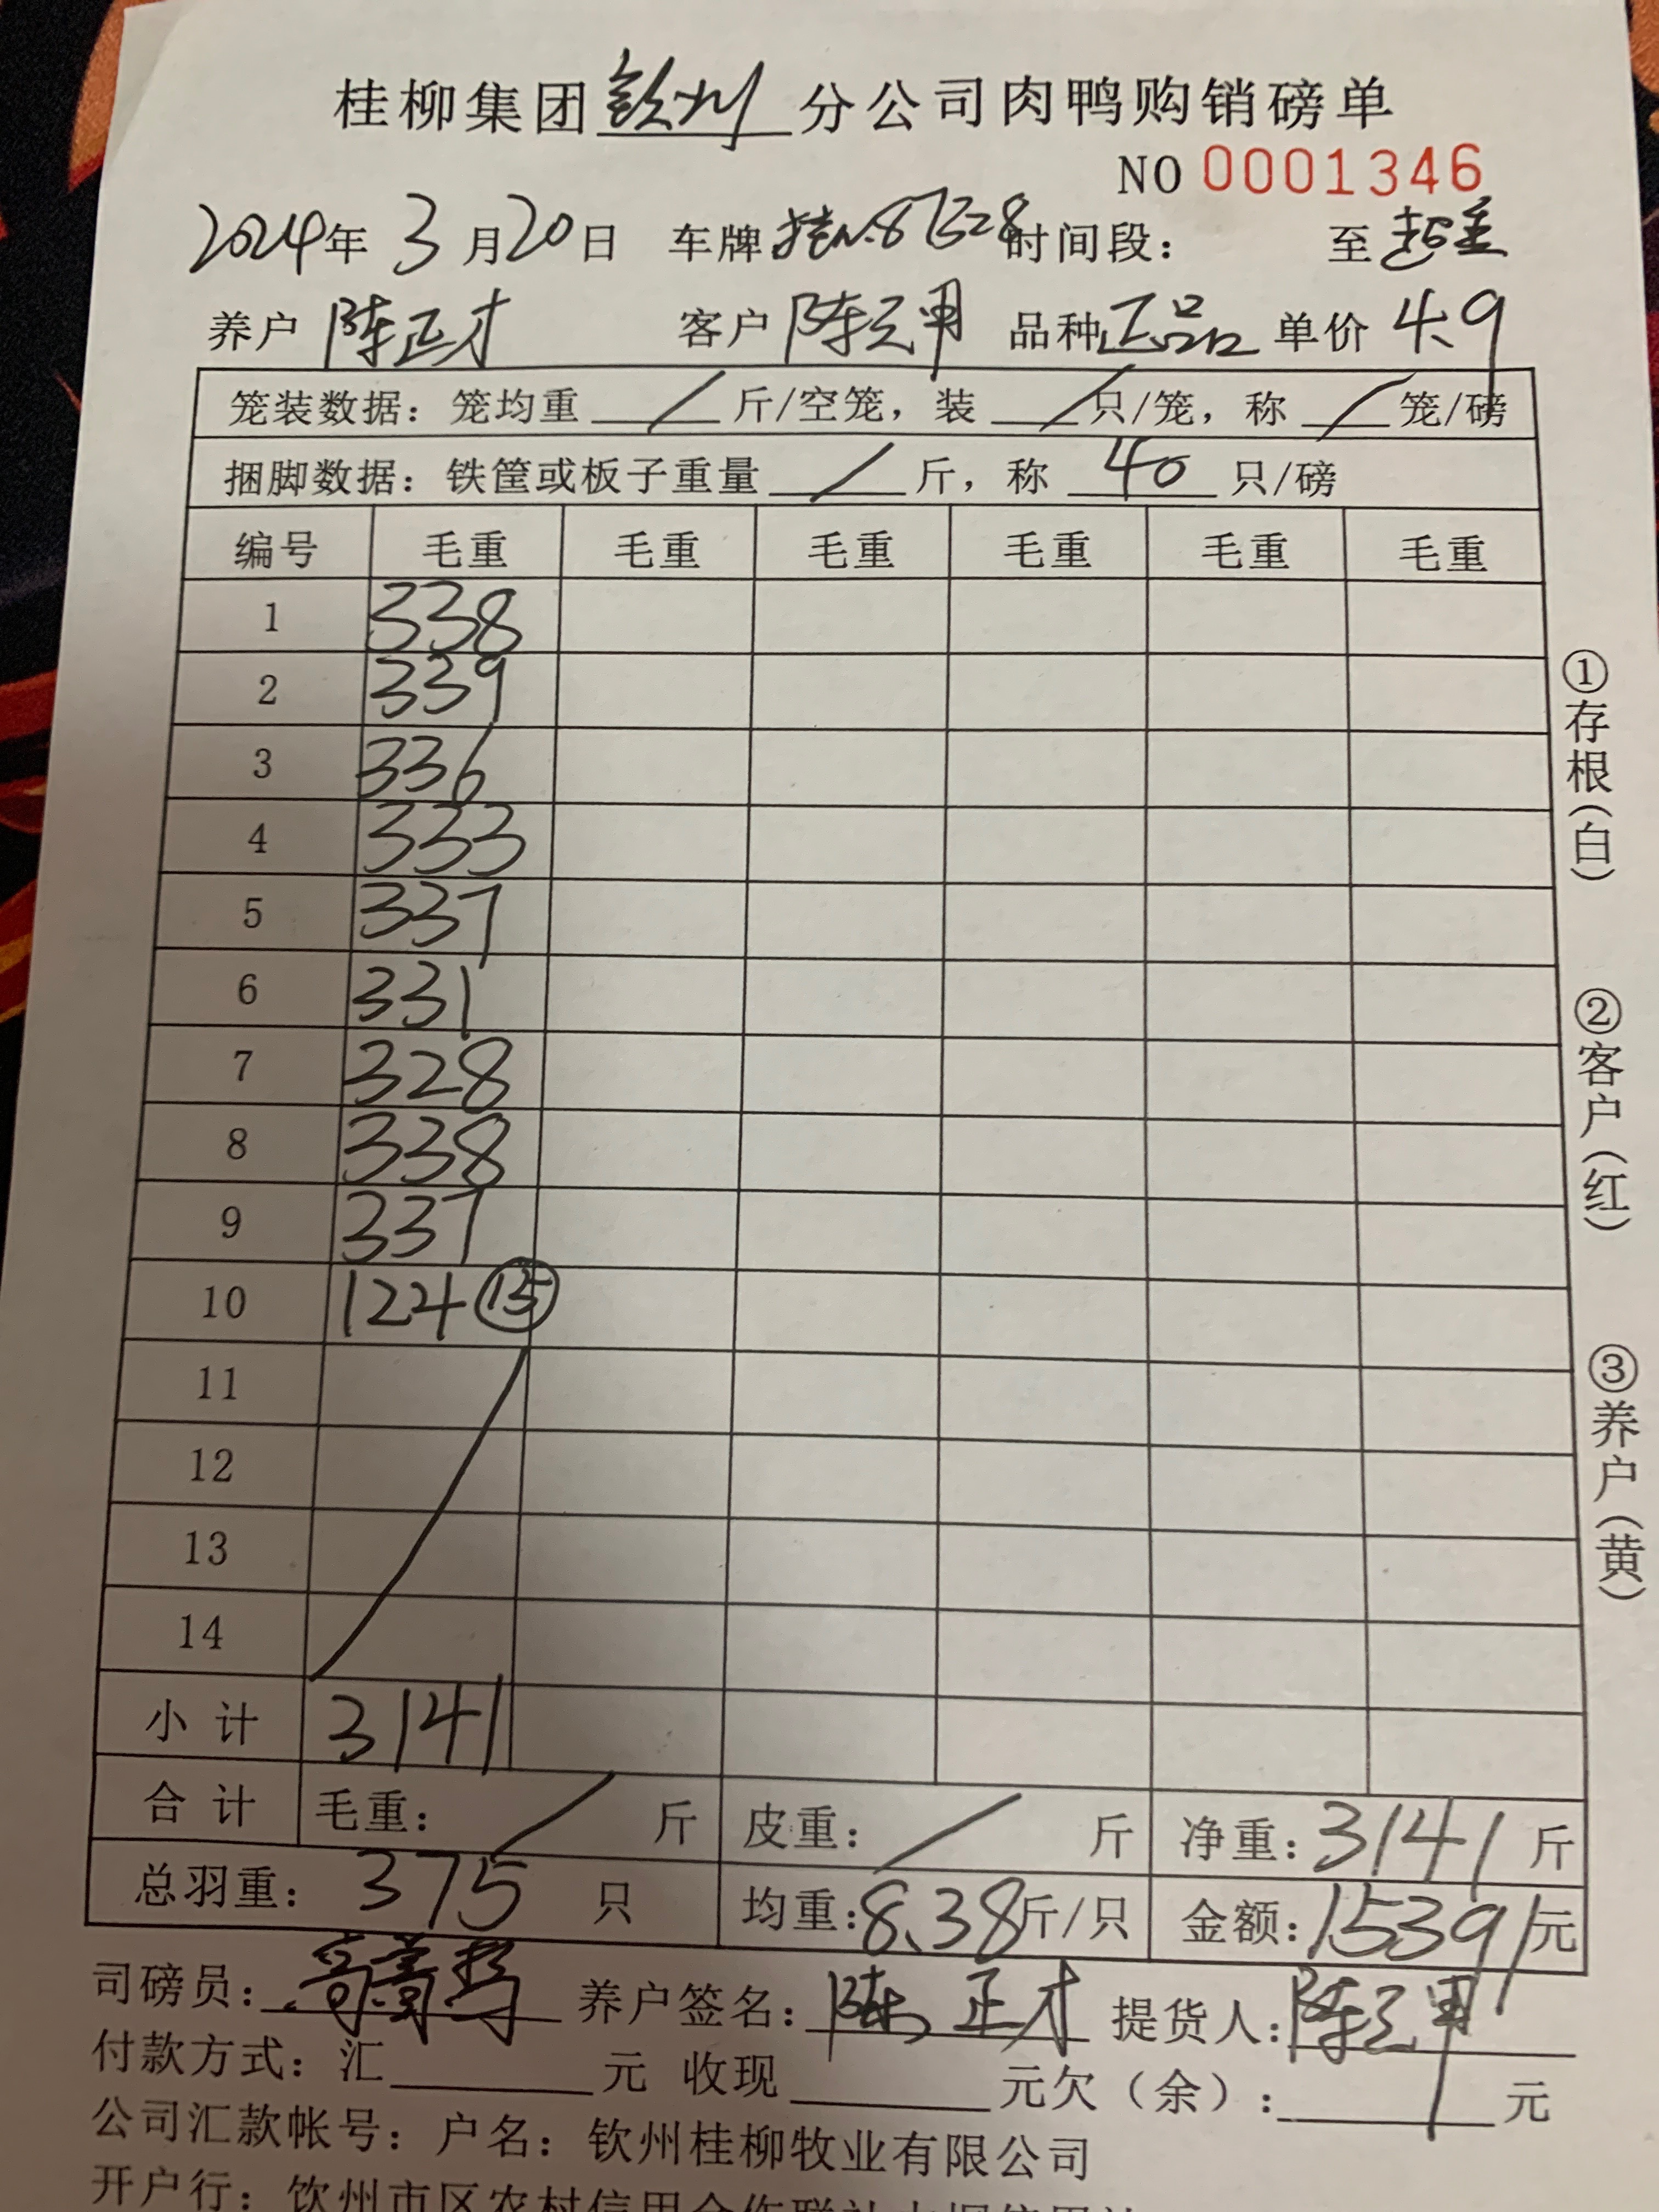 桂柳集团钦州分公司肉鸭购销磅单
NO 0001346
2024年 3月20日 车牌桂N.87528时间段： 至
养户 陈正才 客户 陈 品种正品 单价 4.9
笼装数据：笼均重 / 斤/空笼，装 / 只/笼，称 / 笼/磅
捆脚数据：铁筐或板子重量 / 斤，称 40 只/磅
编号 毛重 毛重 毛重 毛重 毛重 毛重
1 338
2 339
3 336
4 333
5 337
6 331
7 328
8 338
9 337
10 124 ⑮
11
12
13
14
小计 3141
合计 毛重： / 斤 皮重： / 斤 净重：3141 斤
总羽重： 375 只 均重：8.38斤/只 金额：15391元
司磅员： 养户签名：陈正才 提货人：陈
付款方式：汇 元 收现 元欠（余）： 元
公司汇款帐号：户名：钦州桂柳牧业有限公司
开户行：钦州市区农村信用合作联社
①存根（白）
②客户（红）
③养户（黄）